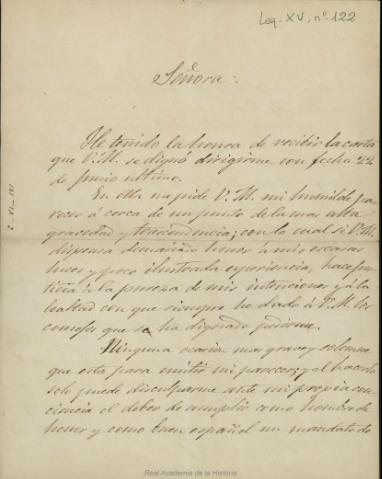 Leg. XV, nº 122
Señora:
He tenido la honra de recibir la carta
que V. M. se dignó dirigirme con fecha 22
de junio ultimo.
En ella me pide V. M. mi humilde pa-
recer á cerca de un punto de la mas alta
gravedad y trascendencia; con lo cual si V. M.
dispensa demasiado honor á mis escasas
luces y poco ilustrada esperiencia, hace jus-
ticia á la pureza de mis intenciones y á la
lealtad con que siempre he dado á V. M. los
consejos que se ha dignado pedirme.
Ninguna ocasion mas grave y solemne
que esta para emitir mi parecer; y al hacerlo
solo puede disculparme ante mi propia con-
ciencia el deber de cumplir como hombre de
honor y como buen español un mandato de
Real Academia de la Historia